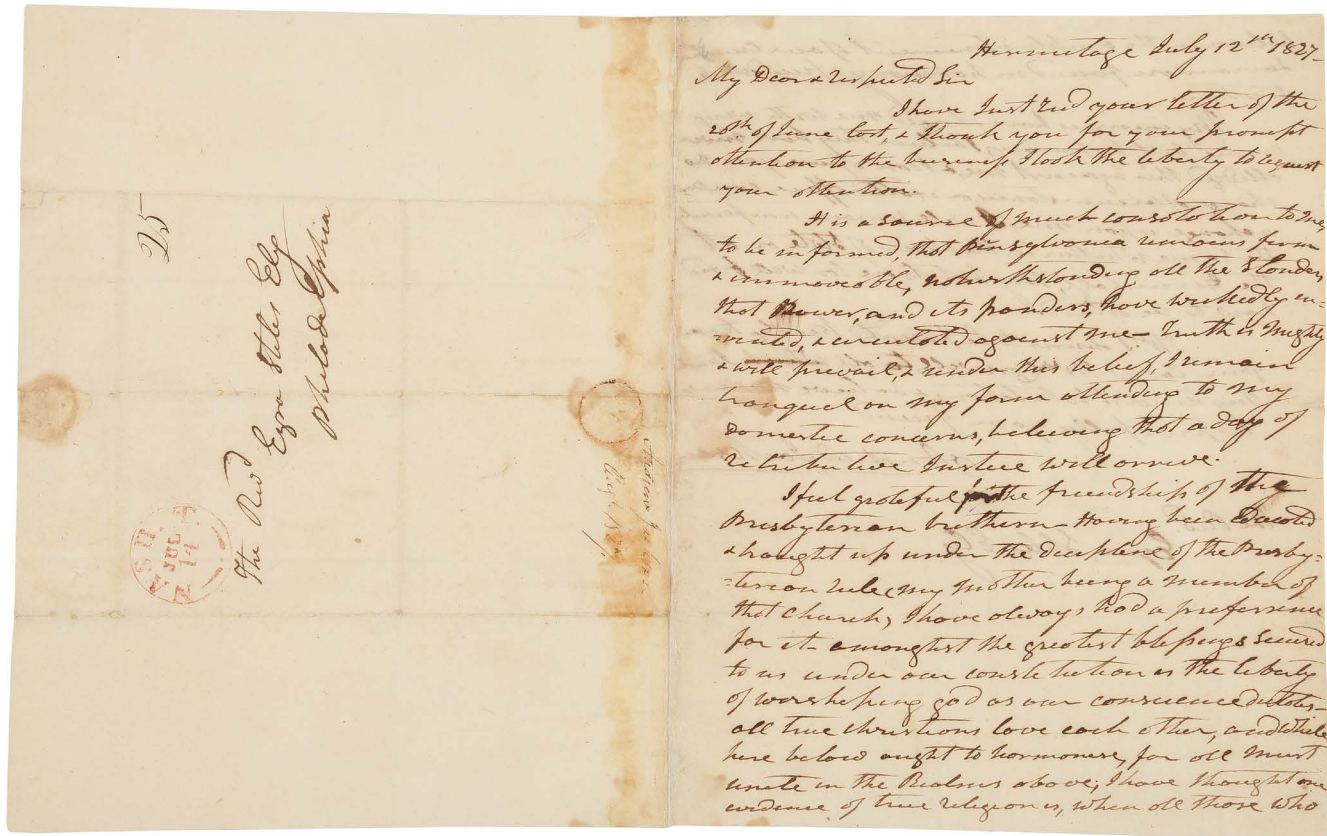 25
The Revd
Ezra Stiles Ely
Philadelphia
NASH. T.
JUL
14
Hermitage July 12th 1827-
My Dear & respected Sir
I have Just recd your letter of the
20th of June last, & thank you for your prompt
attention to the business I took the liberty to request
your attention.
It is a source of much consolation to me,
to be informed, that Pinsylvania remains firm
& immoveable, notwithstanding all the slander,
that Power, and its panders, have wickedly in-
-vented, & circulated against me- Truth is mighty
& will prevail, & under this belief, I remain
tranquil on my farm attending to my
domestic concerns, believing that a day of
retributive Justice will arrive.
I feel grateful for the friendship of the
Presbyterian brethern- Having been Educated
& brought up under the discipline of the Presby-
-terian rule, my mother being a member of
that church, I have always had a preferrence
for it- amonghst the greatest blessings secured
to us under our constitution is the liberty
of worshiping god as our conscience dictates-
all true christians love each other, and while
here below ought to harmonise, for all must
unite in the Realms above; I have thought one
evidence of true religion is, when all those who